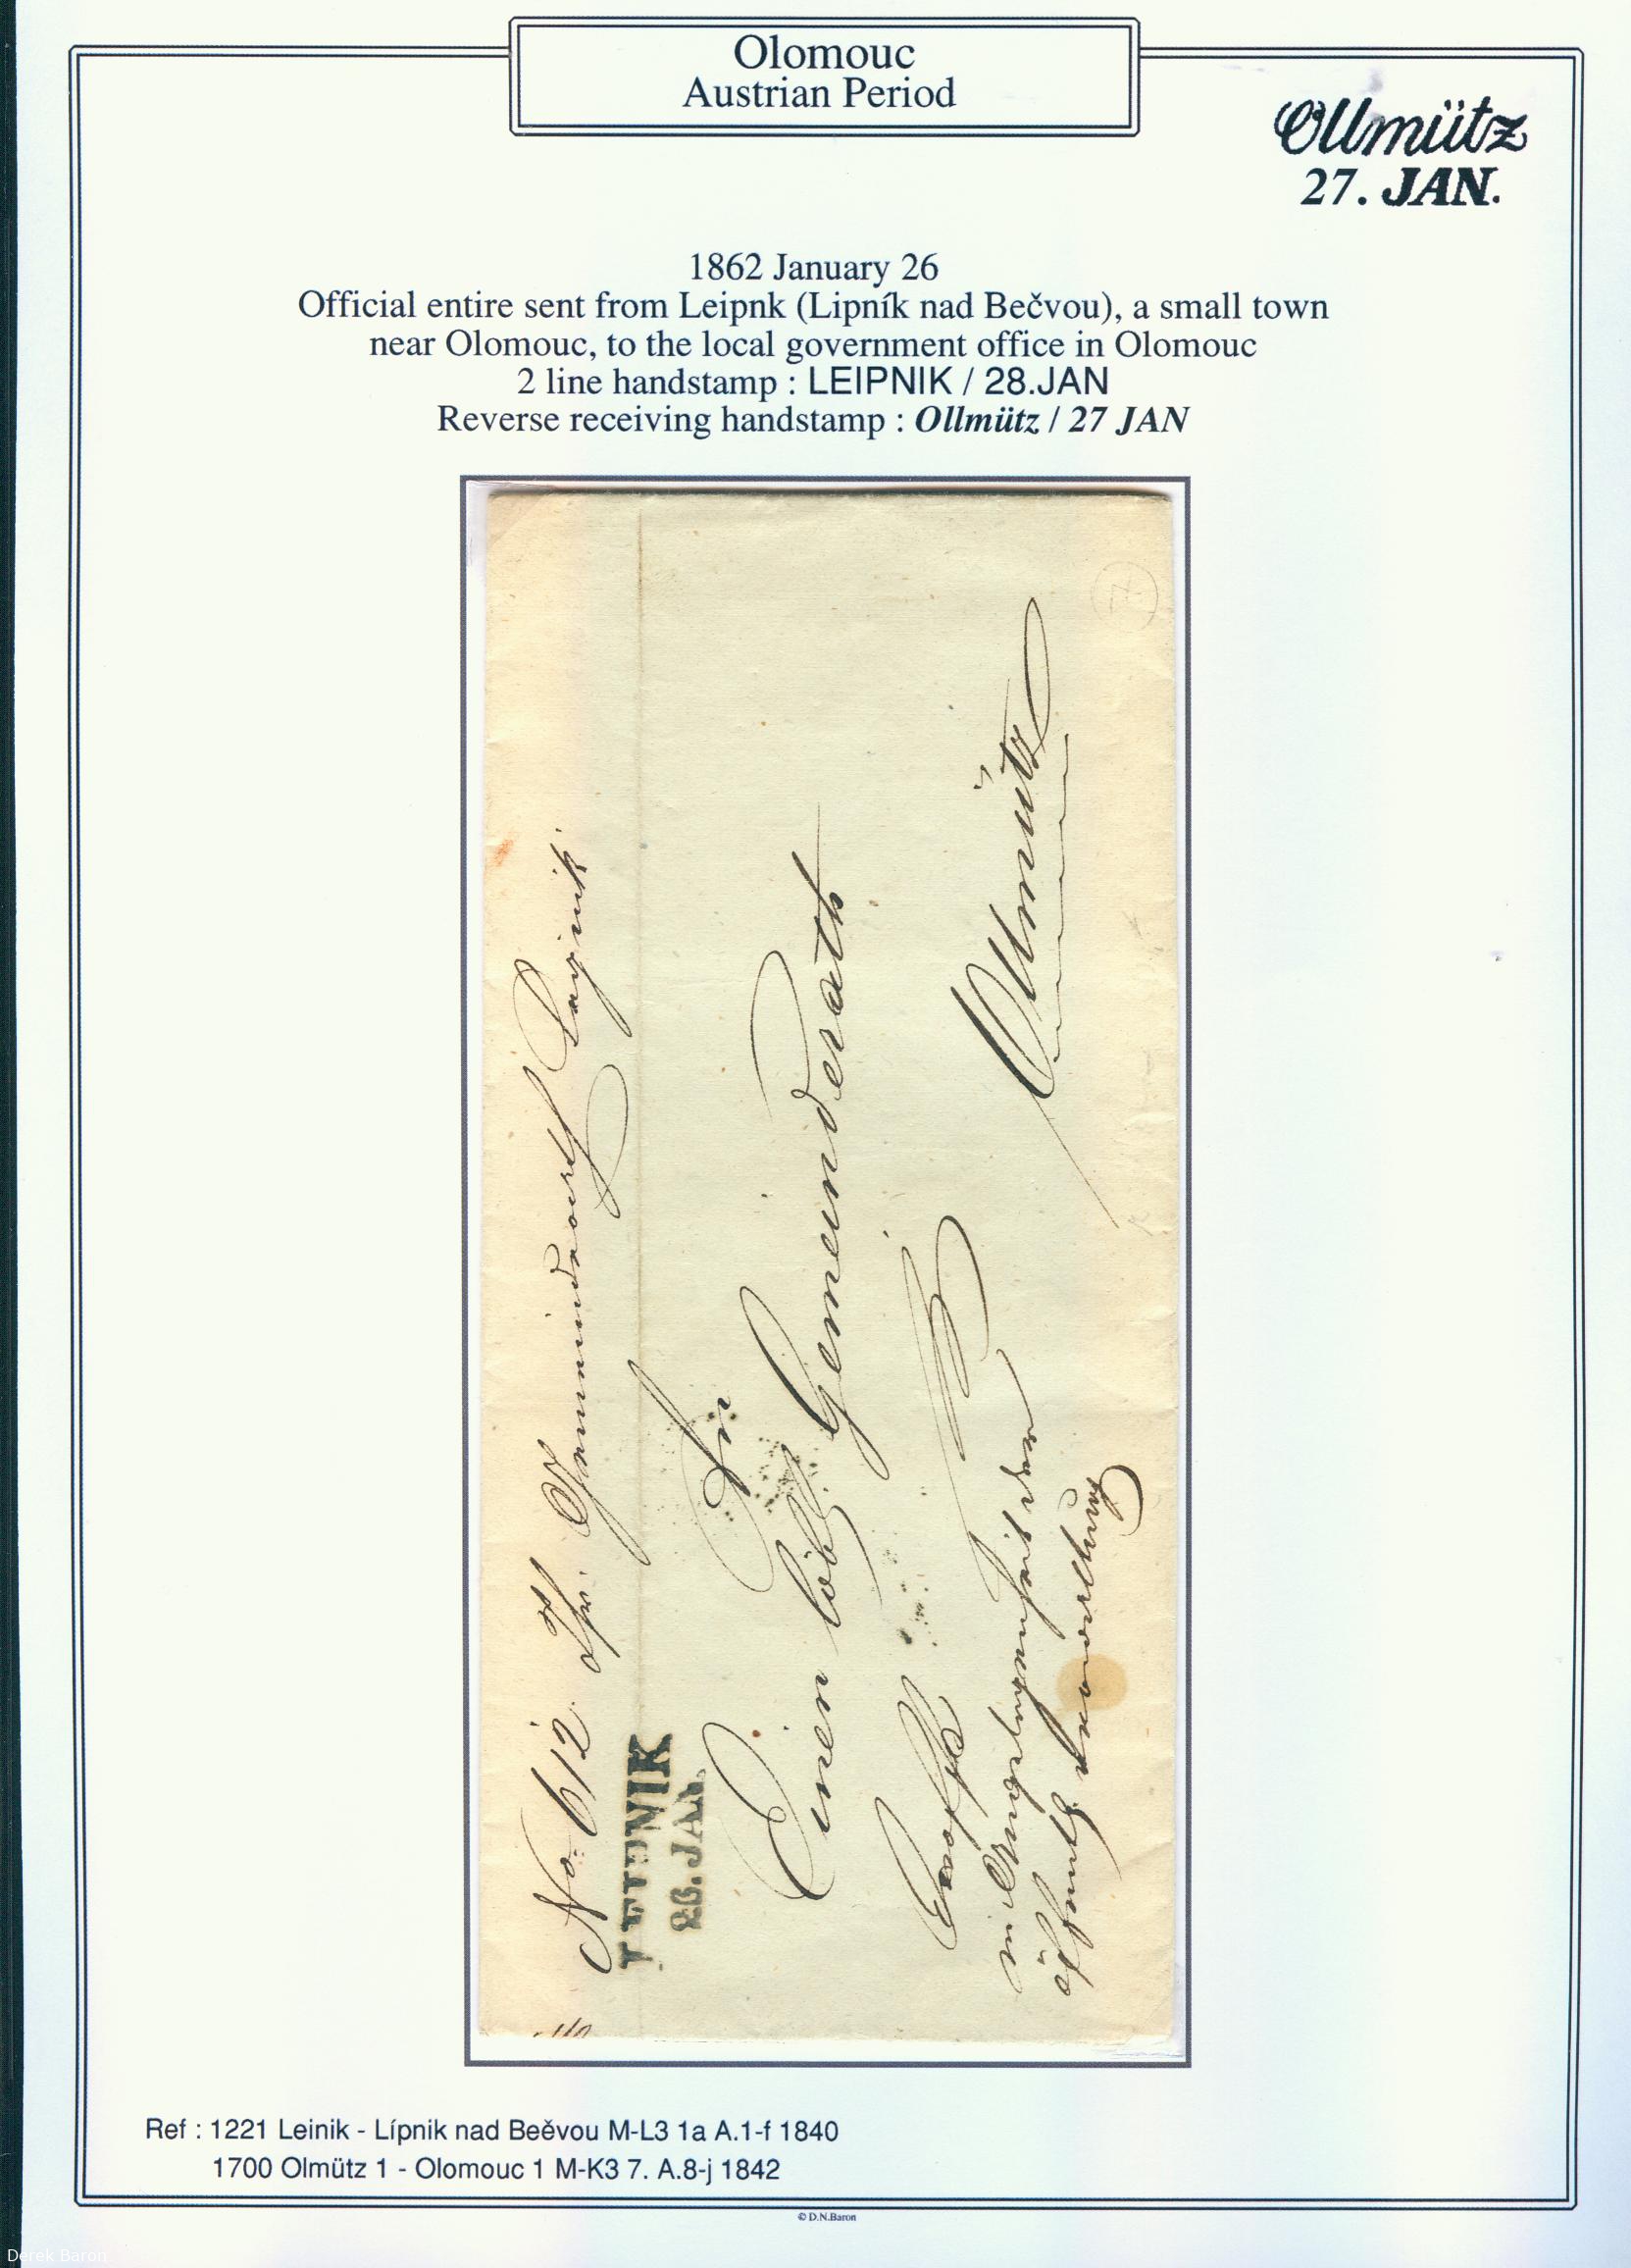 Olomouc
Austrian Period
Ollmütz
27. JAN.
1862 January 26
Official entire sent from Leipnk (Lipník nad Bečvou), a small town
near Olomouc, to the local government office in Olomouc
2 line handstamp : LEIPNIK / 28.JAN
Reverse receiving handstamp : Ollmütz / 27 JAN
No. 612
LEIPNIK
26. JAN.
An
Einen löbl. Gemeinderath
Ollmütz
Ref : 1221 Leinik - Lípnik nad Beěvou M-L3 1a A.1-f 1840
1700 Olmütz 1 - Olomouc 1 M-K3 7. A.8-j 1842
© D.N.Baron
Derek Baron